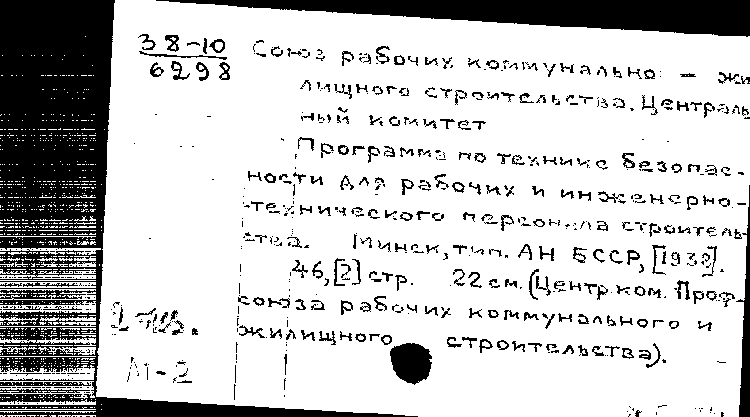 38-10
6298
Союз рабочих коммунально - жи
лищного строительства. Централь
ный комитет
Программа по технике безопас-
ности для рабочих и инженерно-
-технического персонала строитель-
ства. Минск, тип. АН БССР, [1938].
46, [2] стр. 22 см. (Центр. ком. Проф-
союза рабочих коммунального и
жилищного строительства).
2 экз.
М-2